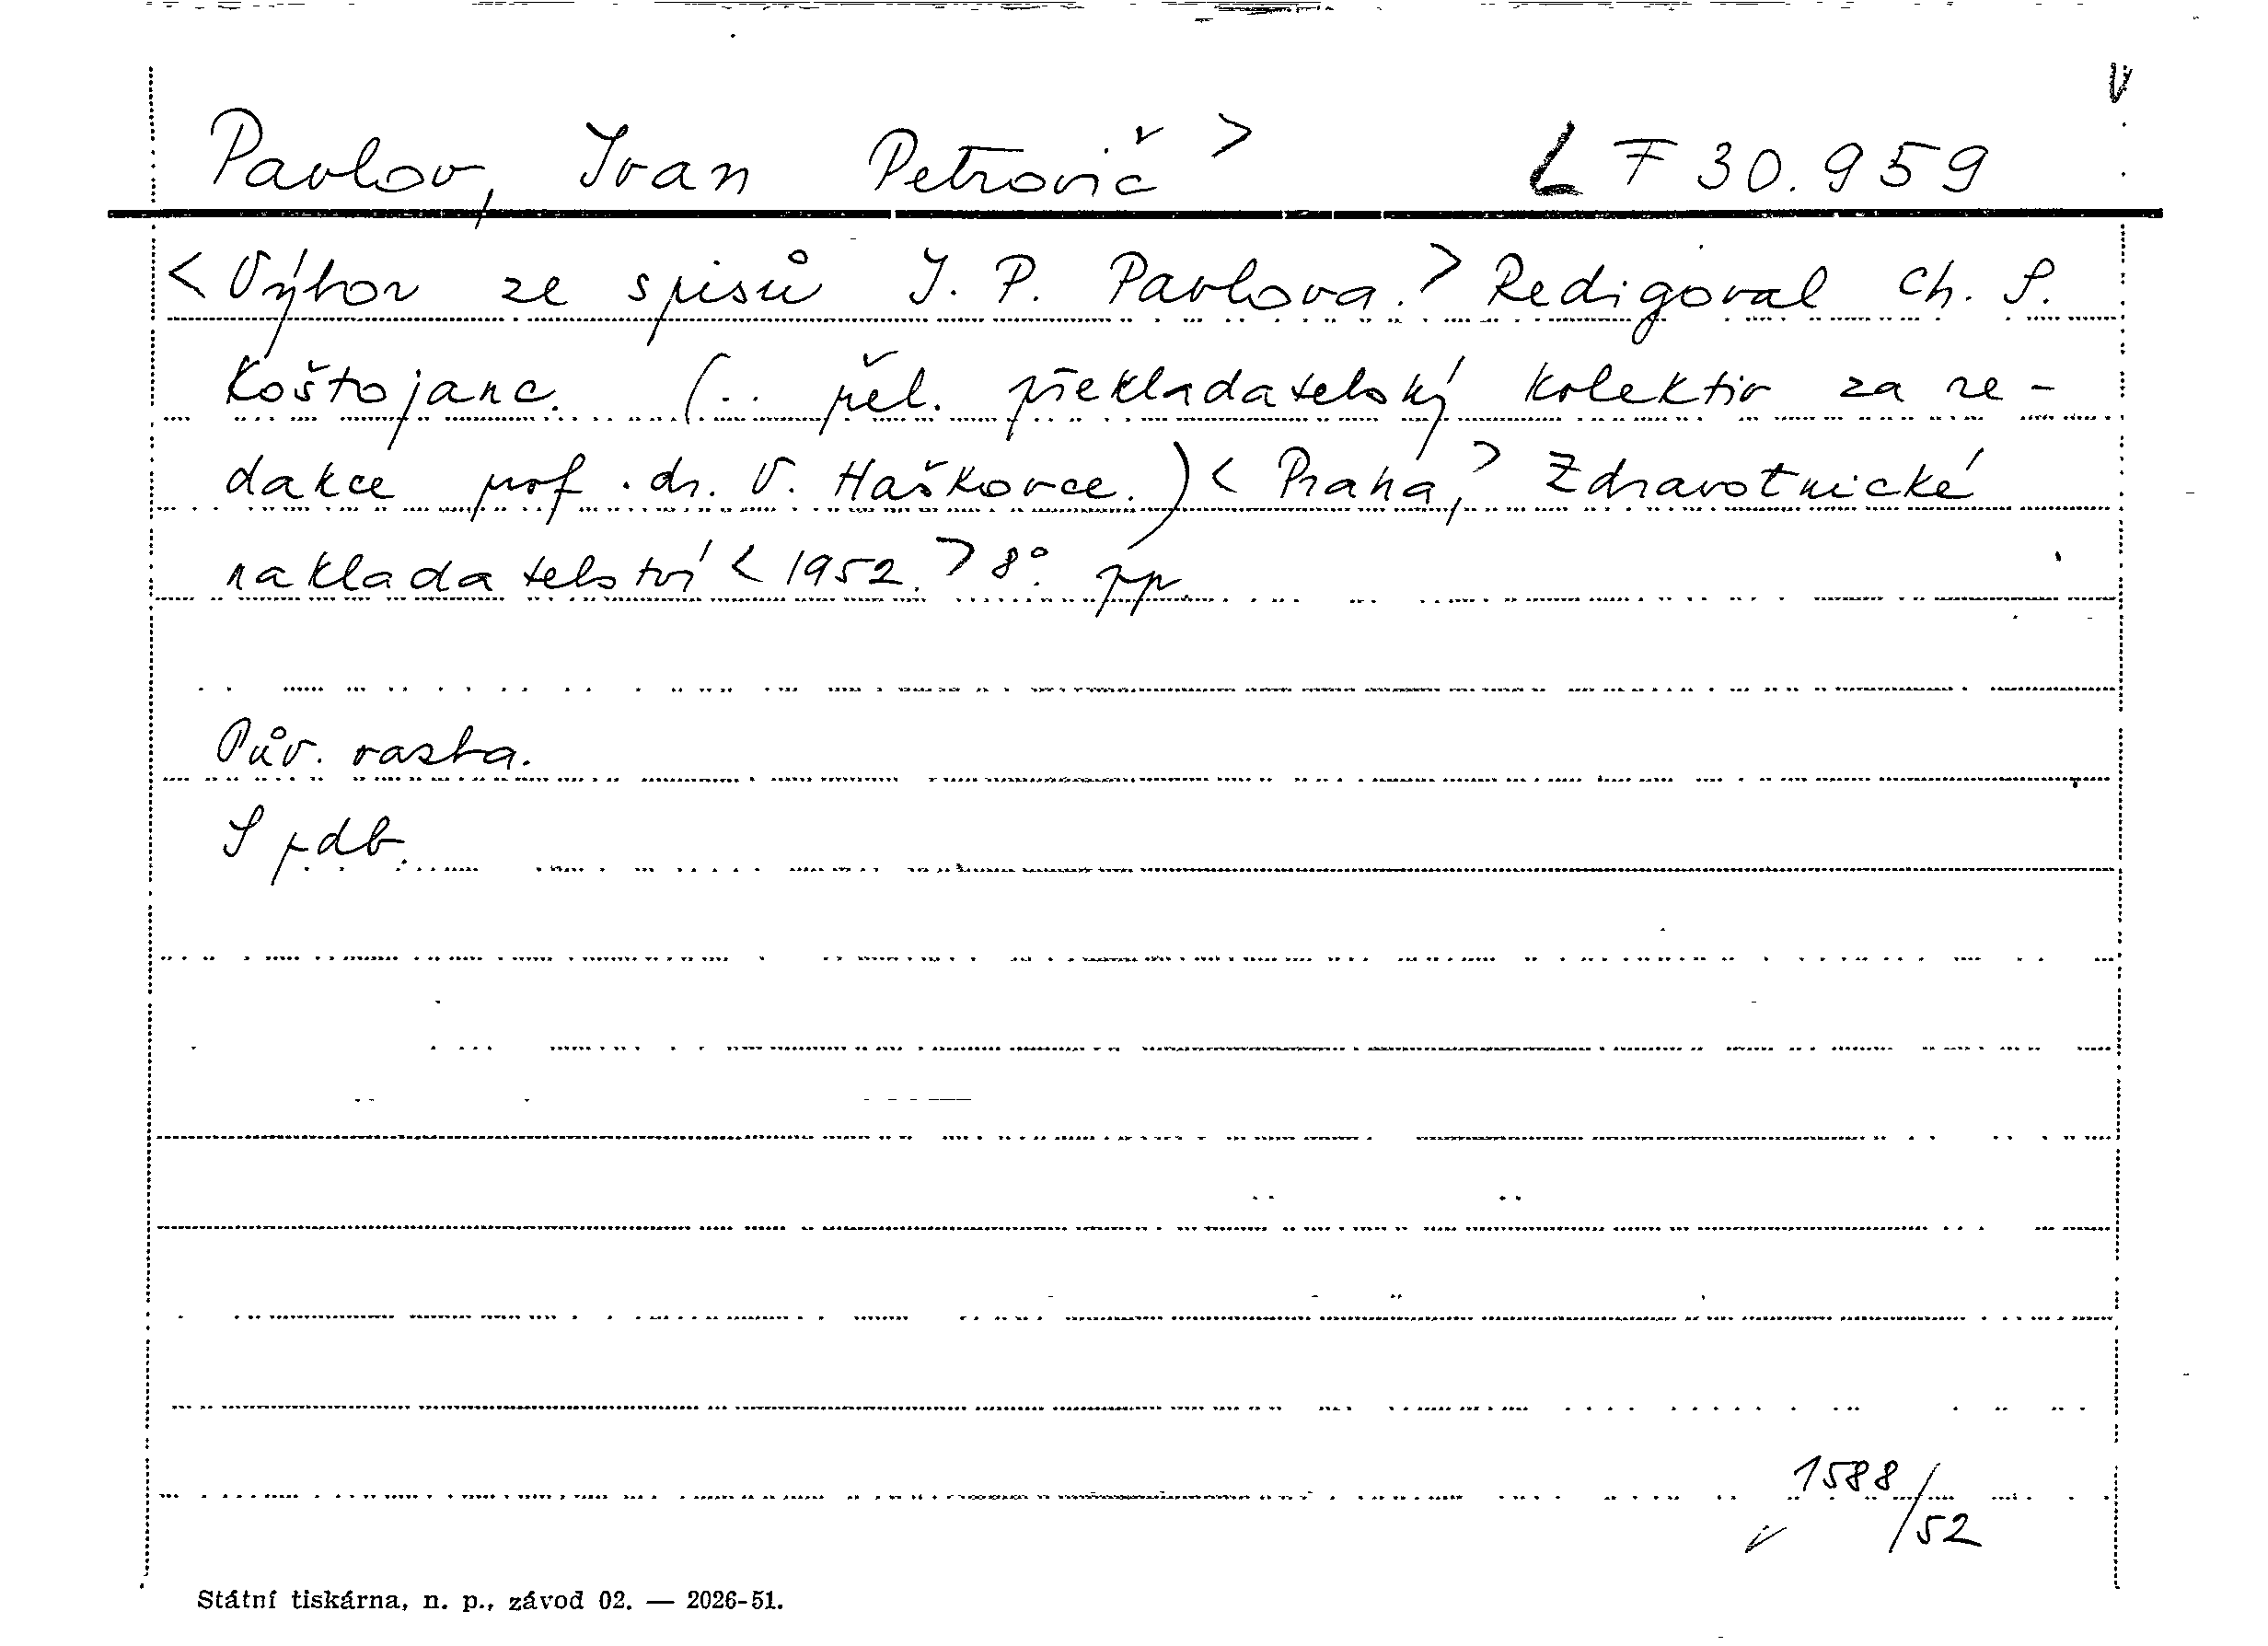 V
Pavlov, Ivan Petrovič > L F 30.959
< Výbor ze spisů I. P. Pavlova. > Redigoval Ch. S.
Koštojanc. (.. přel. překladatelský kolektiv za re-
dakce prof. dr. V. Haškovce.) < Praha, > Zdravotnické
nakladatelství < 1952. > 8°. pp.
Pův. vazba.
S pdb.
1588/52
Státní tiskárna, n. p., závod 02. — 2026-51.